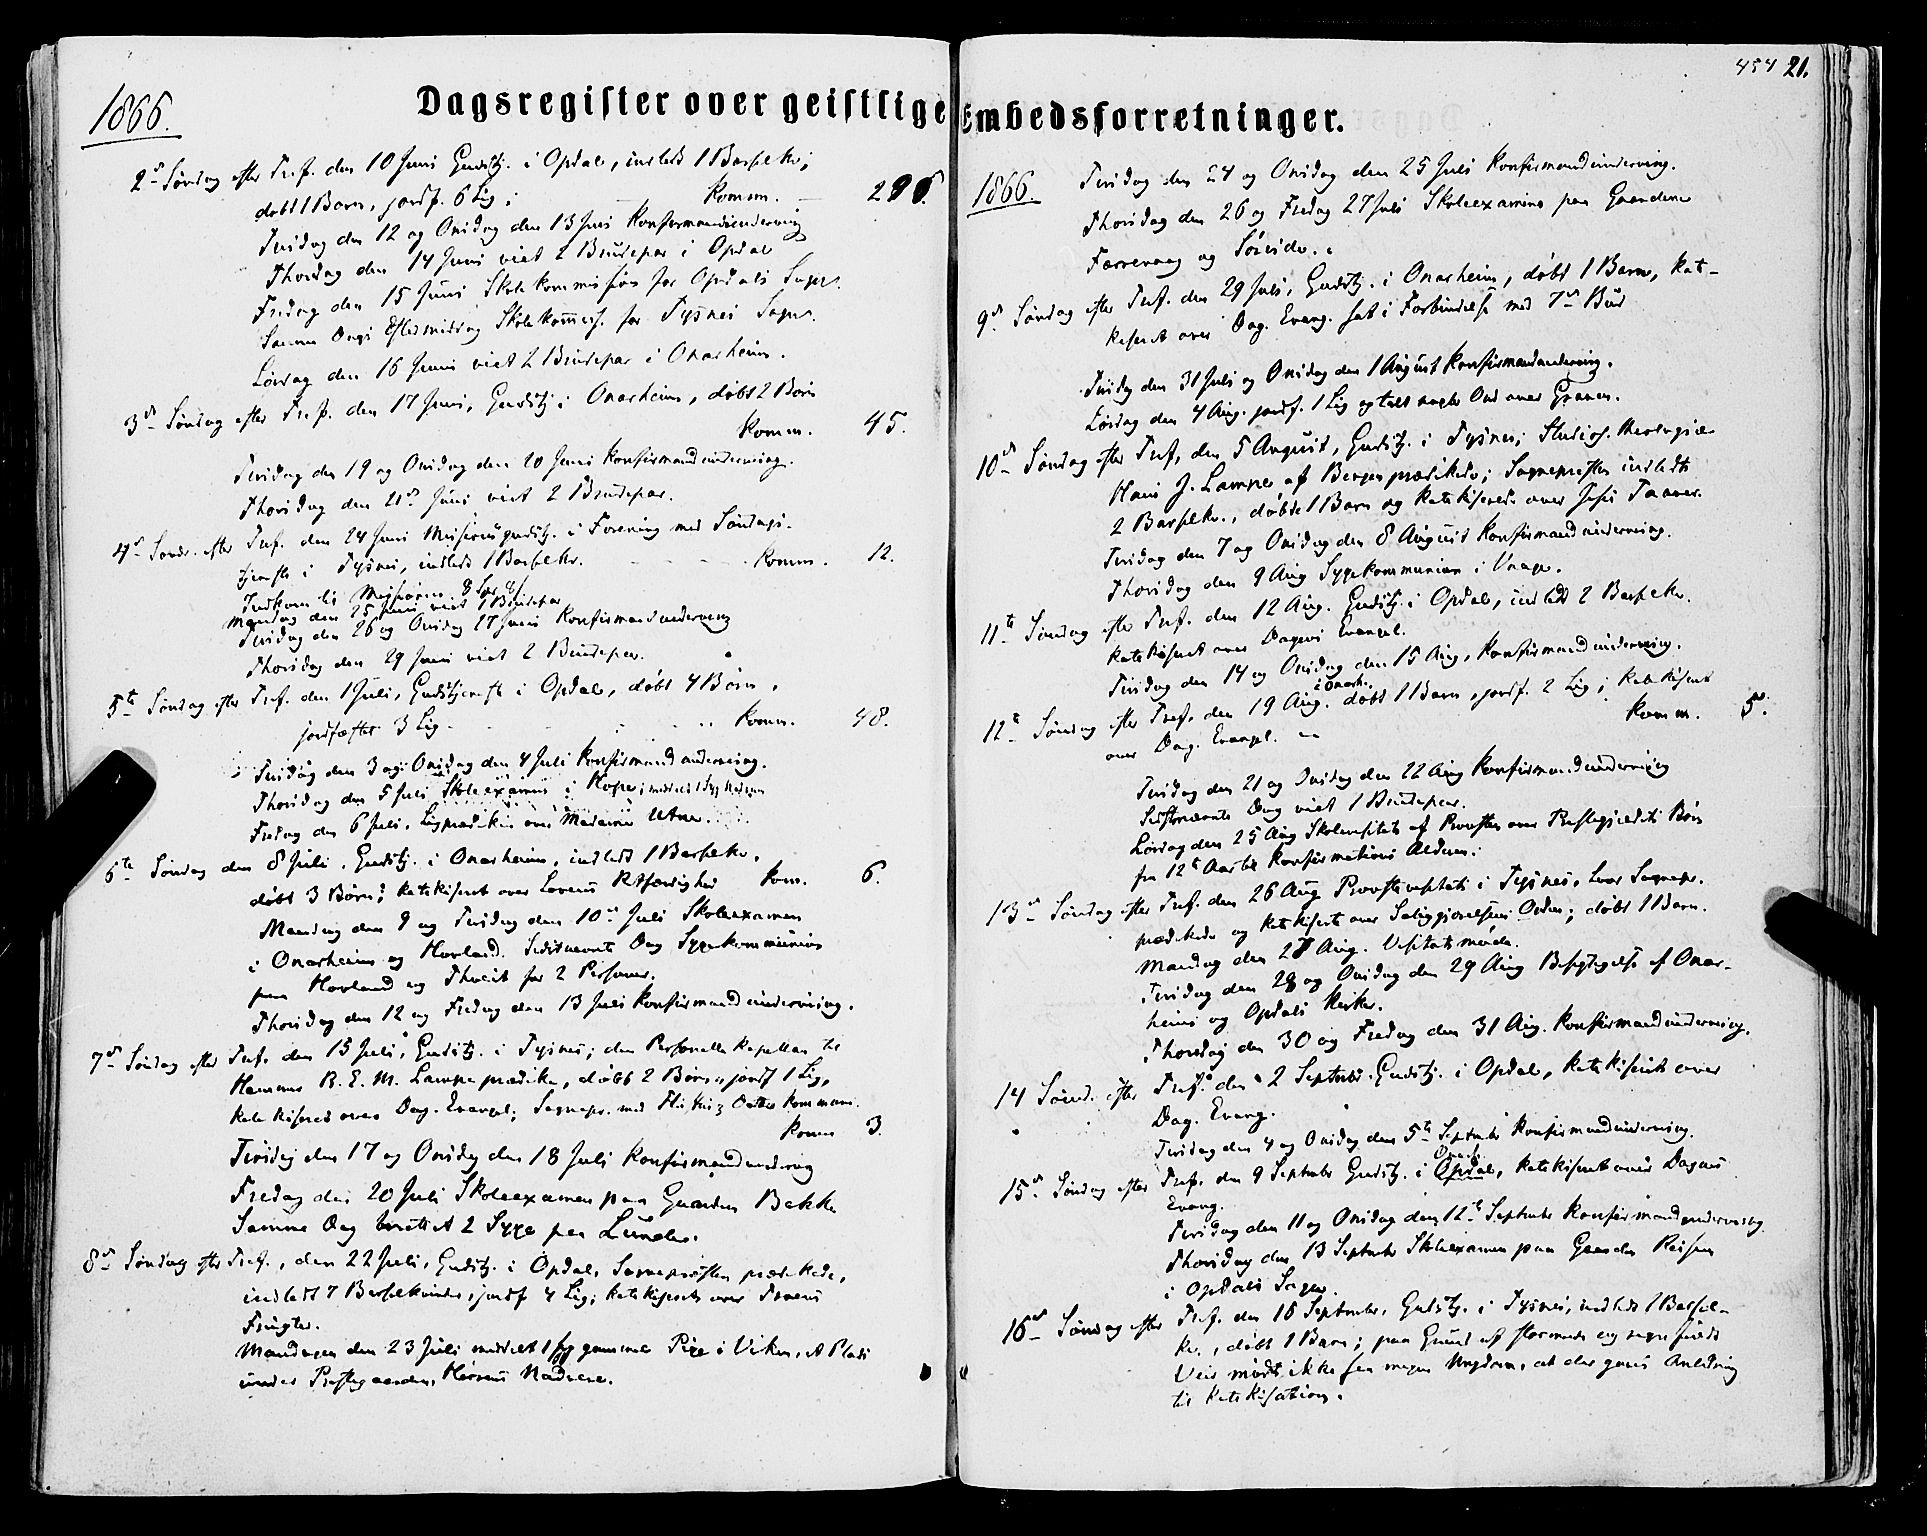 454 21.
Dagsregister over geistlige Embedsforretninger.
1866.
2d Søndag efter Tref. den 10 Juni Gudstj. i Opdal, indledt 1 Barselkv;
døbt 1 Barn, jordf. 6 Lig; Komm. — 296.
Tirsdag den 12 og Onsdag den 13 Juni Konfirmandundervisning
Thorsdag den 14 Juni viet 2 Brudepar i Opdal
Fredag den 15 Juni Skolekommission for Opdals Sogn.
Samme Dags Eftermiddag Skolekommiss. for Tysnes Sogn.
Lørdag den 16 Juni viet 2 Brudepar i Onarheim.
3d Søndag efter Tref. den 17 Juni, Gudstj. i Onarheim, døbt 2 Børn
Komm. 45.
Tirsdag den 19 og Onsdag den 20 Juni Konfirmandundervisning.
Thorsdag den 21d Juni viet 2 Brudepar.
4d Sønd. efter Tref. den 24 Juni Missionsgudstj. i Forening med Søndags-
tjeneste i Tysnes, indledt 1 Barselkv. Komm. 12.
Indkom til Missionen 8
Mandag den 25 Juni viet 1 Brudepar
Tirsdag den 26 og Onsdag 27 Juni Konfirmandundervisning
Thorsdag den 29 Juni viet 2 Brudepar.
5te Søndag efter Tref. den 1 Juli, Gudstjeneste i Opdal, døbt 4 Børn,
jordfæstet 3 Lig Komm. 48.
Tirsdag den 3 og Onsdag den 4 Juli Konfirmandundervisning.
Thorsdag den 5 Juli Skoleexamen i
Fredag den 6 Juli, Ligprædiken over Madame
6te Søndag den 8 Juli. Gudstj. i Onarheim, indledt 1 Barselkv.
døbt 3 Børn; katekiseret over Lovens Retfærdighed Kom. 6.
Mandag den 9 og Tirsdag den 10de Juli Skoleexamen
i Onarheim og Hovland. Sidstnævnte Dag Sygekommunion
paa Hovland og for 2 Personer.
Thorsdag den 12 og Fredag den 13 Juli Konfirmandundervisning.
7d Søndag efter Tref. den 15 Juli, Gudstj. i Tysnes; den Personelle Kapellan til
Hammer R. E. M. Lampe prædike, døbt 2 Børn, jordf 1 Lig,
katekiseret over Dag. Evangel; Sognepr. med
Komm 3.
Tirsdag den 17 og Onsdag den 18 Juli Konfirmandunderviisng
Fredag den 20 Juli Skoleexamen paa Gaarden Bakke
Samme Dag berettet 2 Syge paa Lunde.
8d Søndag efter Tref., den 22 Juli, Gudstj. i Opdal, Sognepresten prædikede,
indledt 7 Barselkvinder, jordf 4 Lig; katekiseret over Troens
Frugter.
Mandagen den 23 Juli meddelt 1 syg gammel Pige i Viken, et Plads
under Prestegaarden, Herrens Nadvere.
1866.
Tirsdag den 24 og Onsdag den 25 Juli Konfirmandundervisning.
Thorsdag den 26 og Fredag 27 Juli Skoleexamina paa Gaardene
Færrevaag og
9d Søndag efter Tref. den 29 Juli, Gudstj. i Onarheim, døbt 1 Barn, kat-
kiseret over Dag. Evang. sat i Forbindelse med 7d Bud
Tirsdag den 31 Juli og Onsdag den 1 August Konfirmandundervisning.
Lørdag den 4 Aug. jordf. 1 Lig og talt nogle Ord over Graven.
10d Søndag efter Tref. den 5 August, Gudstj. i Tysnes; Studios. theologiæ
Hans J. Lampe af Bergen prædikede; Sognepresten indledte
2 Barselkv., døbte 1 Barn og katekiserede over Jesu Taarer.
Tirsdag den 7 og Onsdag den 8 August Konfirmandundervisning.
Thorsdag den 9 Aug Sygekommunion i
11te Søndag efter Tref. den 12 Aug. Gudstj. i Opdal, indledt 2 Barselkv.
katekiseret over Dagens Evangel.
Tirsdag den 14 og Onsdag den 15 Aug, Konfirmandundervisning.
12te Søndag efter Tref. den 19 Aug. i Onarh. døbt 1 Barn, jordf. 2 Lig; katekiseret
over Dag. Evangel. Komm. 5.
Tirsdag den 21 og Onsdag den 22 Aug Konfirmandundervisning
Sidstnævnte Dag viet 1 Brudepar.
Lørdag den 25 Aug Skolevisitats af Provsten over Prestegjeldets Børn
fra 12te Aar til Konfirmations Alderen.
13d Søndag efter Tref. den 26 Aug Provstevisitats i Tysnes, hvor Sognepr.
prædikede og katekiserte over Saliggjørelsens Orden; døbt 1 Barn.
Mandag den 27 Aug. Visitatsmøde.
Tirsdag den 28 og Onsdag den 29 Aug Besigtigelse af Onar-
heims og Opdals Kirker.
Thorsdag den 30 og Fredag den 31 Aug. Konfirmandundervisning.
14 Sønd. efter Tref. den 2 Septmbr. Gudstj. i Opdal, katekiseret over
Dag. Evang.
Tirsdag den 4 og Onsdag den 5te Septmbr Konfirmandundervisning.
15d Søndag efter Tref. den 9 Septmbr Gudstj. i Opdal, Onarh. katekiseret over Dagens
Evang.
Tirsdag den 11 og Onsdag den 12te Septmbr Konfirmandundervisning.
Thorsdag den 13 Septmbr Skoleexamen paa Gaarden
i Opdals Sogn.
16d Søndag efter Tref. den 16 Septmbr. Gudstj. i Tysnes, indledt 1 Barsel-
kv., døbt 1 Barn; paa Grund af stormende og regnfuldt
Veir mødte ikke saa megen Ungdom, at der gaves Anledning
til Katekisation.